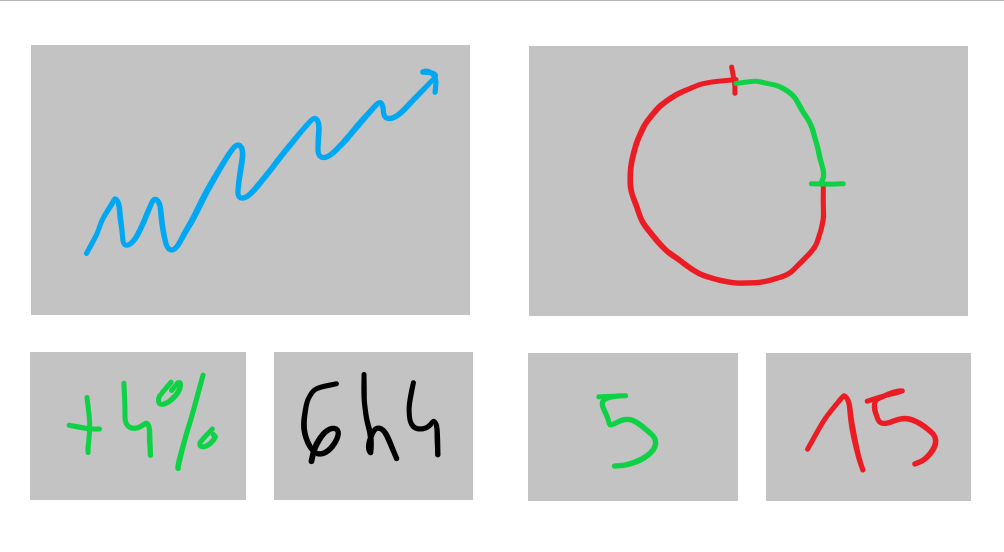 +4%
6h4
5
15